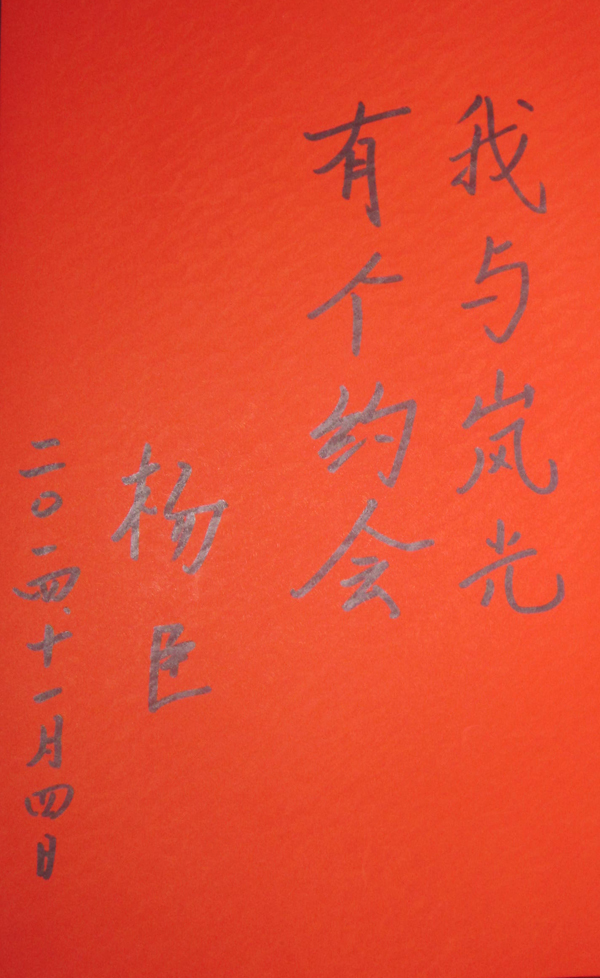 我与岚光
有个约会
杨臣
二〇一四、十一月四日